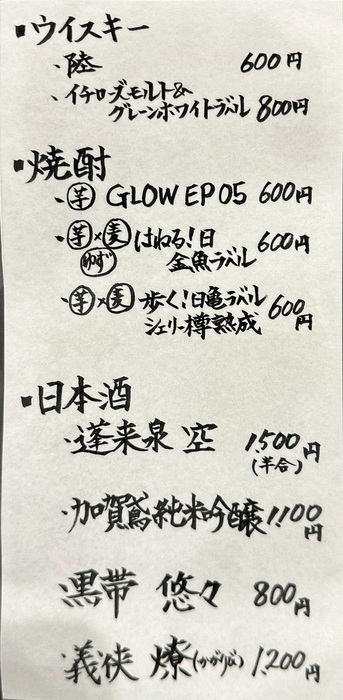 ■ウイスキー
・陸 600円
・イチローズモルト&
グレーンホワイトラベル 800円
■焼酎
・芋 GLOW EP05 600円
・芋×麦 はねる!日 600円
ゆず 金魚ラベル
・芋×麦 歩く!日亀ラベル 600
シェリー樽熟成 円
■日本酒
・蓬来泉 空 1,500円
(半合)
・加賀鳶純米吟醸 1,100
円
黒帯 悠々 800円
義侠 燎(かがりび) 1,200円